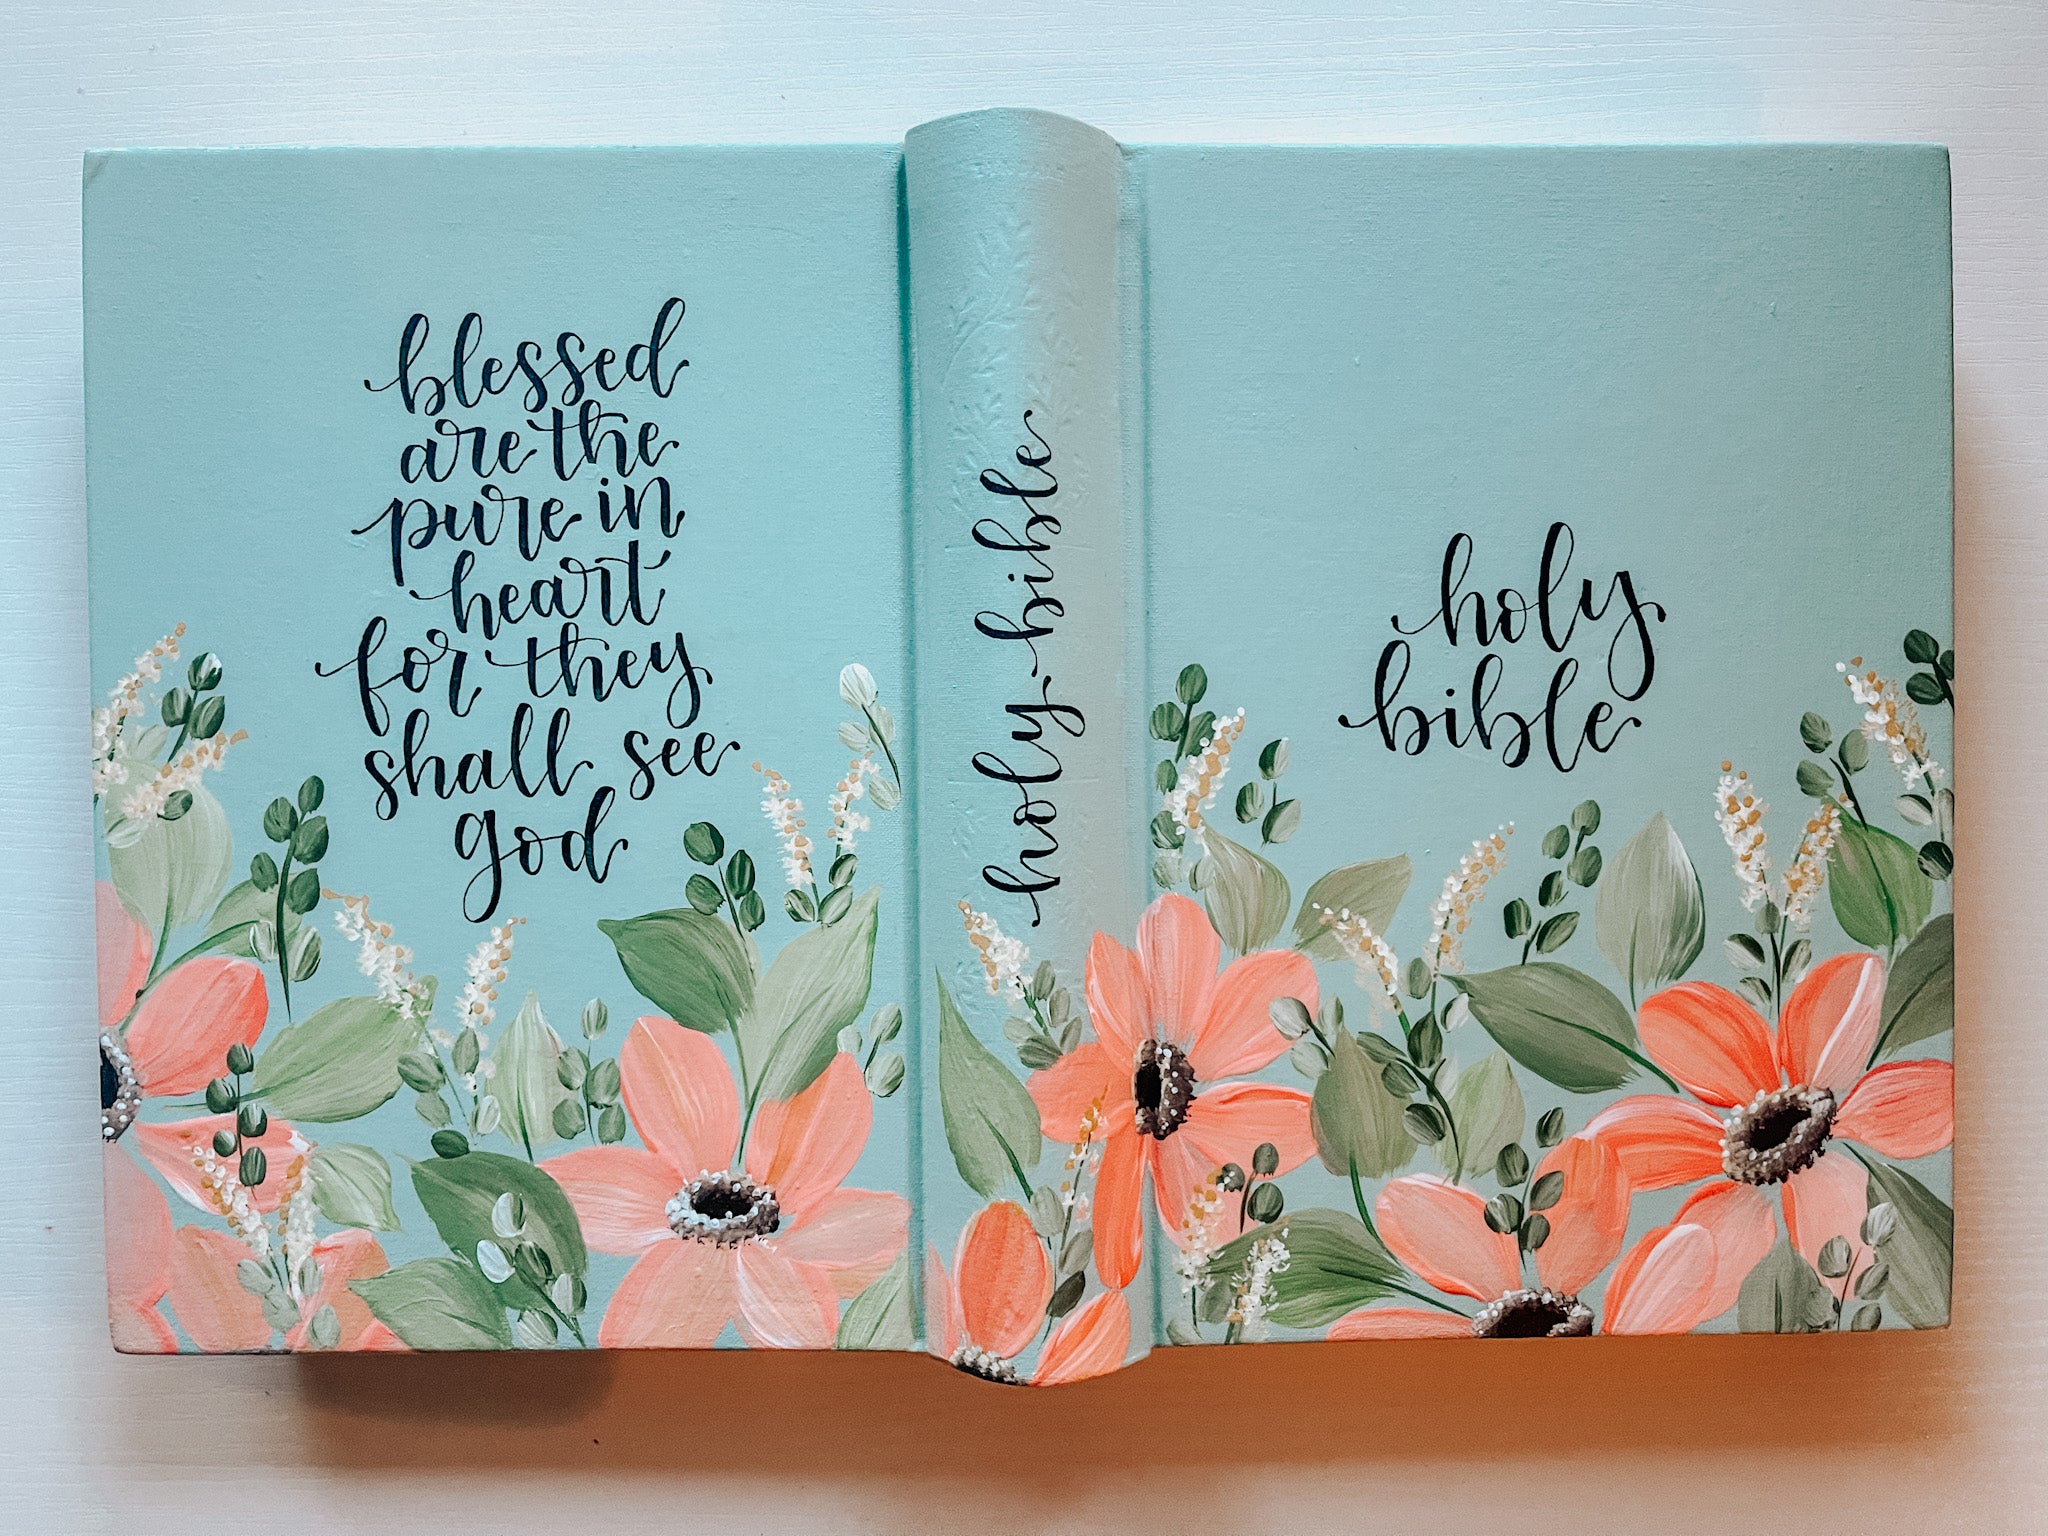 blessed
are the
pure in
heart
for they
shall see
god
holy bible
holy
bible